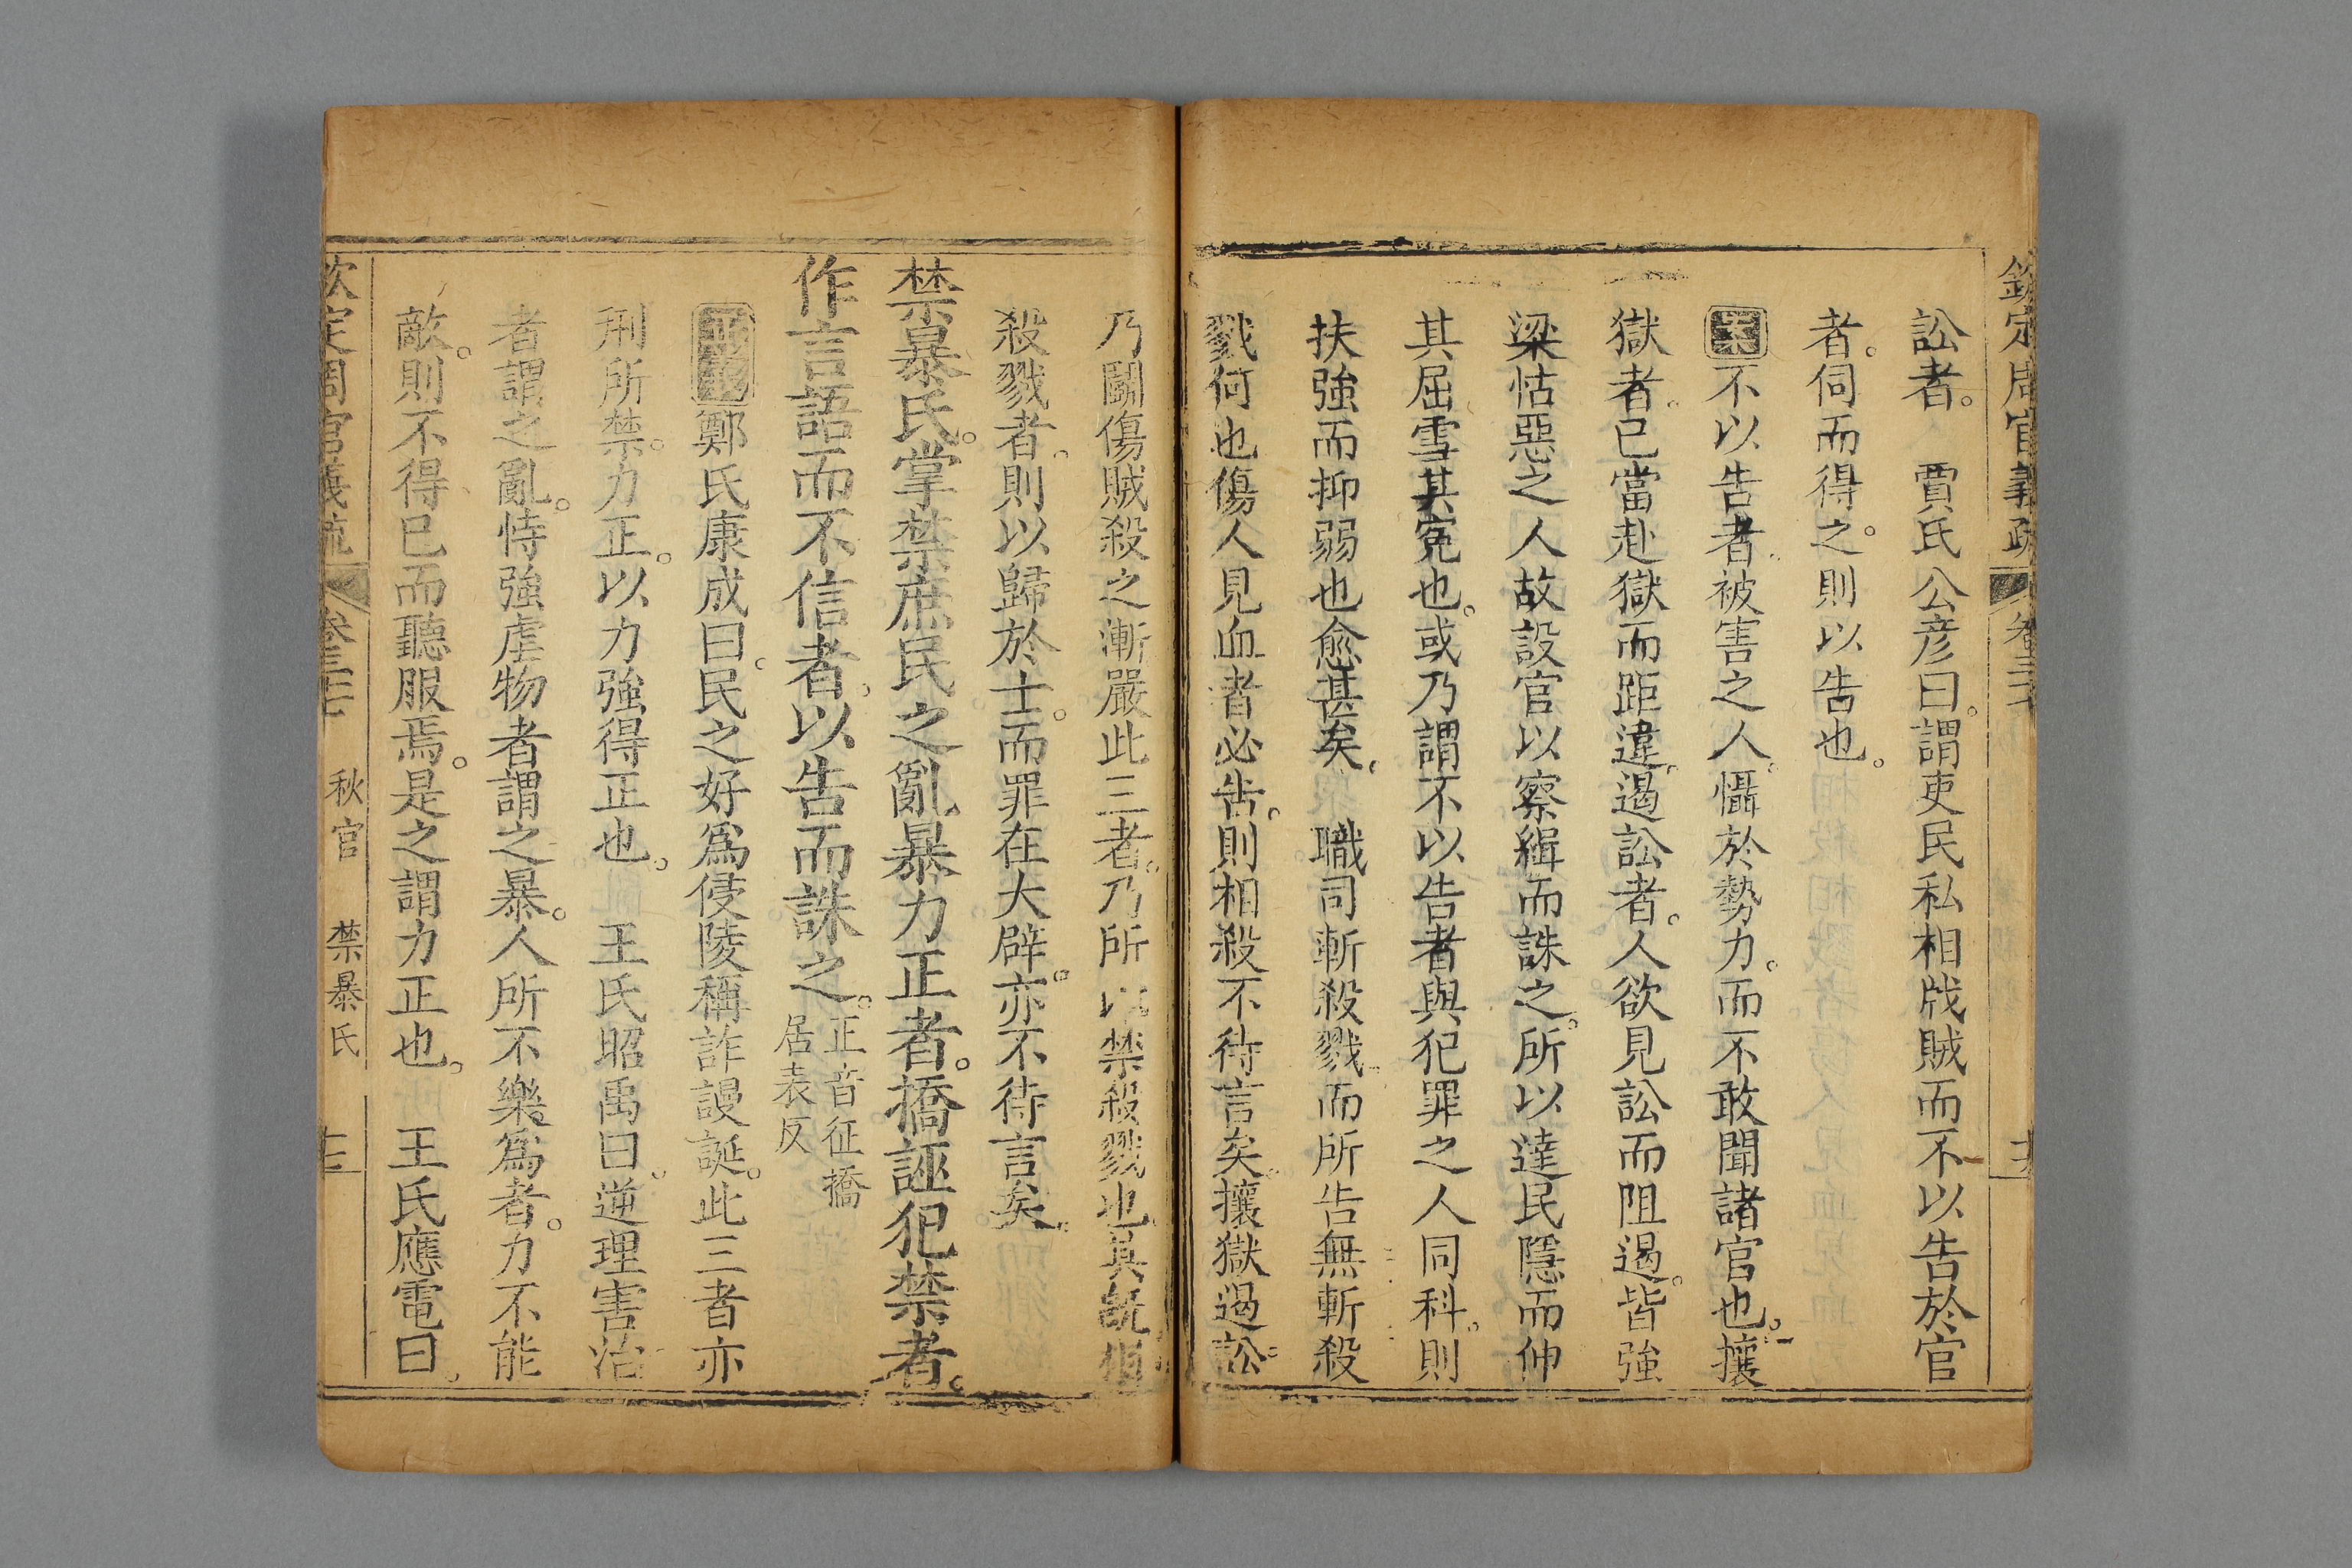 欽定周官義疏 卷三十七
訟者。 賈氏公彦曰。謂吏民私相戕賊而不以告於官
者。伺而得之。則以告也。
案不以告者。被害之人。懾於勢力。而不敢聞諸官也。攘
獄者。已當赴獄而距違。遏訟者。人欲見訟而阻遏。皆強
梁怙惡之人故設官以察緝而誅之。所以達民隱而伸
其屈雪其寃也。或乃謂不以告者與犯罪之人同科。則
扶強而抑弱也愈甚矣。 職司斬殺戮。而所告無斬殺
戮何也傷人見血者必告。則相殺不待言矣。攘獄遏訟。
乃鬭傷賊殺之漸嚴此三者。乃所以禁殺戮也其
殺戮者。則以歸於士。而罪在大辟。亦不待言矣。
禁暴氏。掌禁庶民之亂暴力正者。撟誣犯禁者。
作言語而不信者。以告而誅之。正音征撟
居表反
正義鄭氏康成曰。民之好爲侵陵稱詐謾誕。此三者亦
刑所禁。力正。以力強得正也。 王氏昭禹曰。逆理害治
者謂之亂。恃強虐物者謂之暴。人所不樂爲者。力不能
敵。則不得已而聽服焉。是之謂力正也。 王氏應電曰。
欽定周官義疏 卷三十七 秋官 禁暴氏